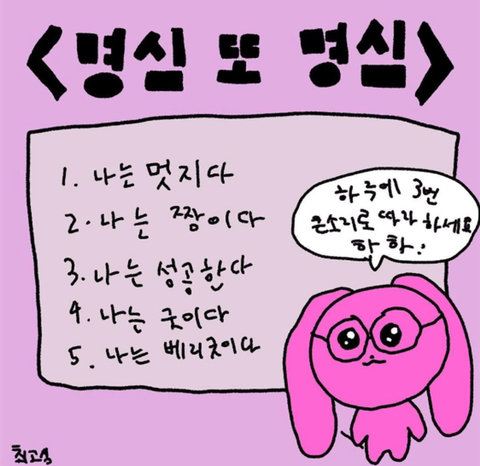 <명심 또 명심>
1. 나는 멋지다
2. 나는 짱이다
3. 나는 성공한다
4. 나는 굿이다
5. 나는 베리굿이다
하루에 3번
큰소리로 따라 하세요
핫 핫!
최고심